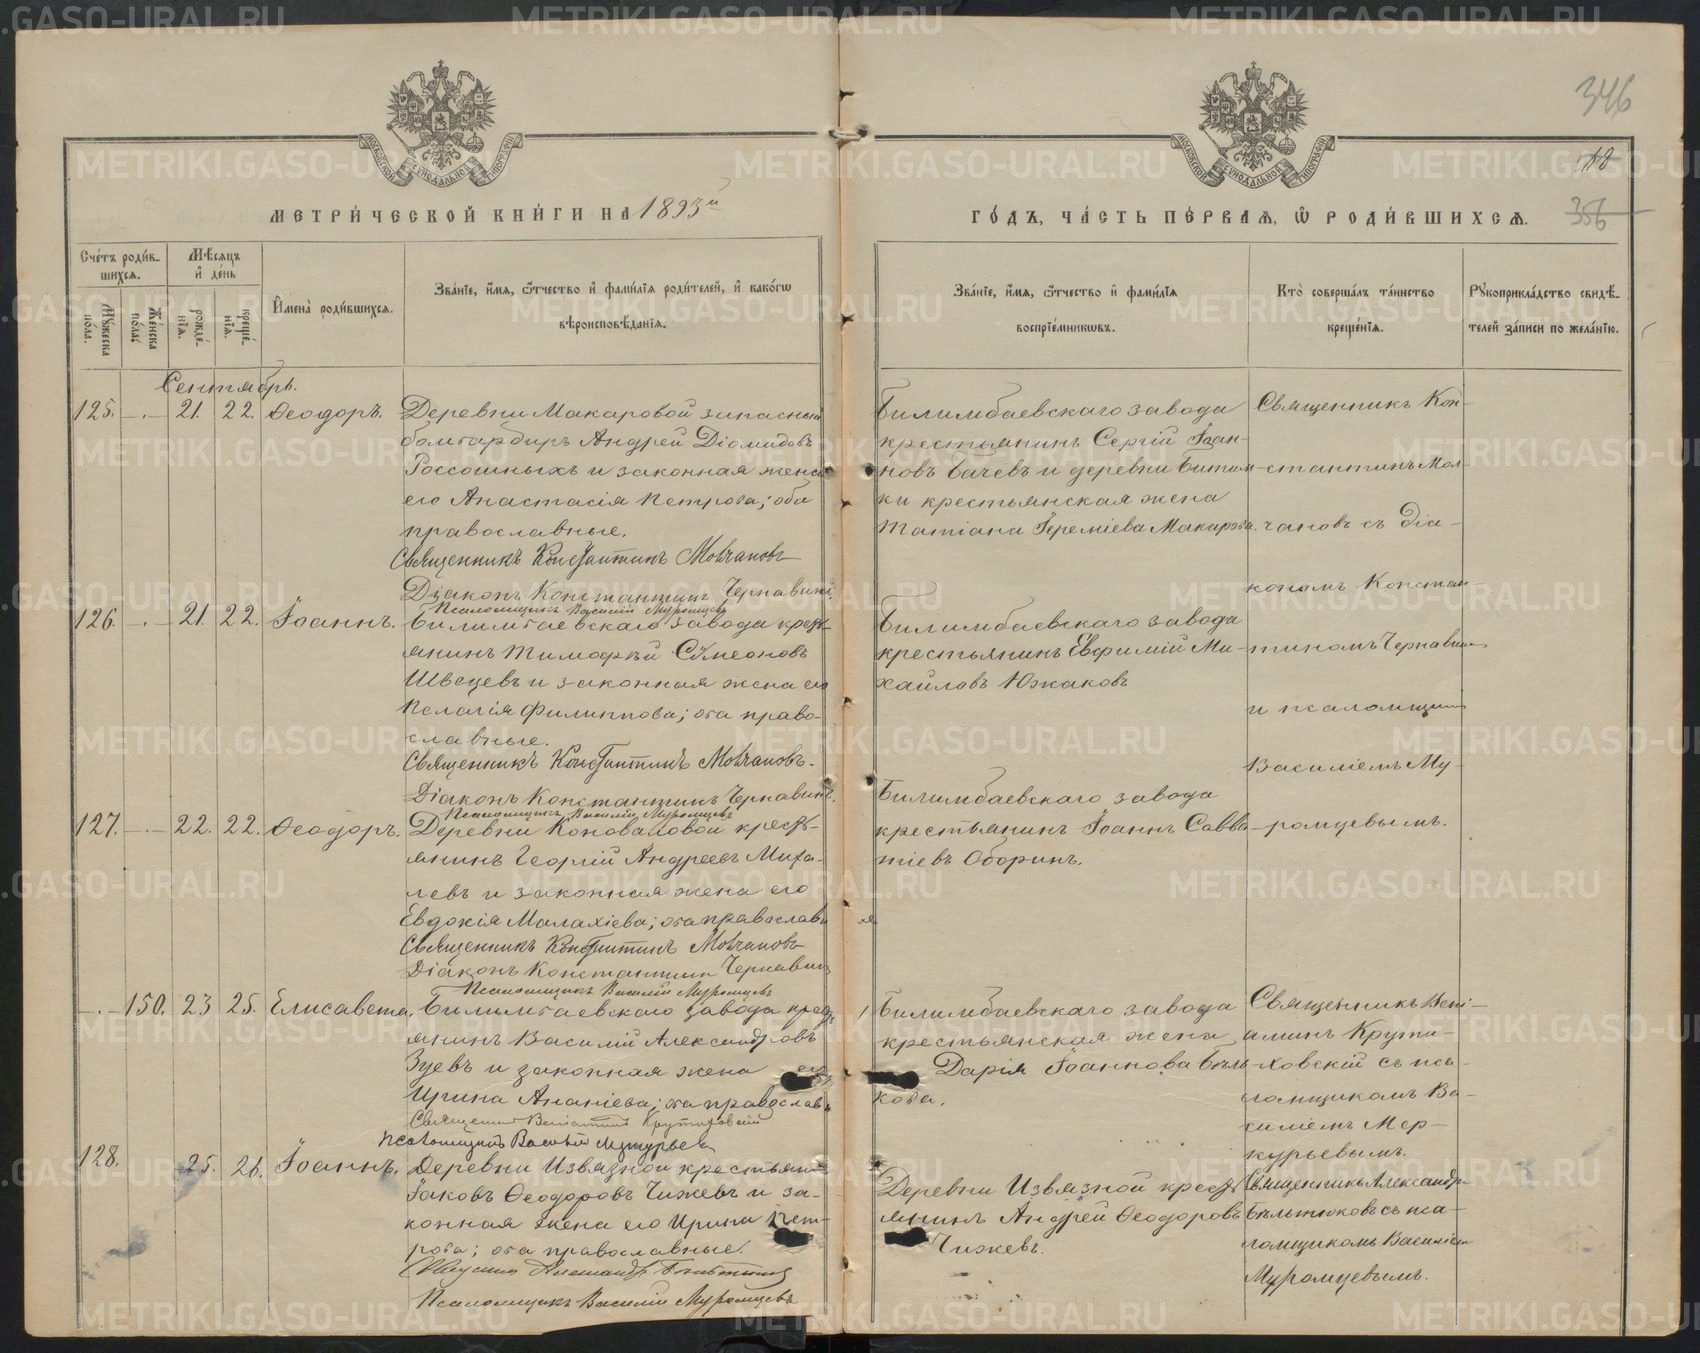 346
18
356
МЕТРИ́ЧЕСКОЙ КНИ́ГИ НА 1893й
ГО́ДЪ, ЧА́СТЬ ПЕ́РВАѦ, Ѽ РОДИ́ВШИХСѦ.
Сче́тъ роди́в-
шихсѧ.
Мѣ́сѧцъ
и҆ де́нь
Мꙋ́жеска
по́ла.
Же́нска
по́ла.
рожде́-
нїѧ.
креще́-
нїѧ.
И҆мена̀ роди́вшихсѧ.
Зва́нїе, и҆́мѧ, ѻ҆́тчество и҆ фами́лїѧ роди́телей, и҆ како́гѡ
вѣроисповѣ́данїѧ.
Зва́нїе, и҆́мѧ, ѻ҆́тчество и҆ фами́лїѧ
воспрїе́мникѡвъ.
Кто̀ соверша́лъ та́инство
креще́нїѧ.
Рꙋкоприкла́дство свидѣ́-
телей за́писи по жела́нїю.
Сентябрь.
125. —.— 21. 22. Ѳеодоръ.
Деревни Макаровой запасный
бомбардиръ Андрей Діомидовъ
Россошныхъ и законная жена
его Анастасія Петрова; оба
православные.
Священникъ Константинъ Молчановъ
Діаконъ Константинъ Чернавинъ.
Псаломщикъ Василій Муромцевъ
Билимбаевскаго завода
крестьянинъ Сергій Іоан-
новъ Бачевъ и деревни Битим-
ки крестьянская жена
Татіана Іереміева Макарова.
Священникъ Кон-
стантинъ Мол-
чановъ съ діа-
кономъ Констан-
тиномъ Чернавин
и псаломщик
Василіемъ Му-
ромцевымъ.
126. —.— 21. 22. Іоаннъ.
Билимбаевскаго завода крест-
янинъ Тимофей Сѵмеоновъ
Швецевъ и законная жена его
Пелагія Филиппова; оба право-
славные.
Священникъ Константинъ Молчановъ.
Діаконъ Константинъ Чернавинъ.
Псаломщикъ Василій Муромцевъ
Билимбаевскаго завода
крестьянинъ Евфимій Ми-
хайловъ Южаковъ
127. —.— 22. 22. Ѳеодоръ.
Деревни Коноваловой крест-
янинъ Георгій Андреевъ Миха-
левъ и законная жена его
Евдокія Малахіева; оба православн
Священникъ Константинъ Молчановъ
Діаконъ Константинъ Чернавин
Псаломщикъ Василій Муромцевъ
Билимбаевскаго завода
крестьянинъ Іоаннъ Савва-
тіевъ Оборинъ.
—.— 150. 23 25. Елисавета.
Билимбаевскаго завода крест
янинъ Василій Александровъ
Зуевъ и законная жена его
Ирина Ананіева; оба православн
Священникъ Веніаминъ Крутиховскій
Псаломщикъ Василій Меркурьевъ
Билимбаевскаго завода
крестьянская жена
Дарія Іоаннова Бѣль-
кова.
Священникъ Вені-
аминъ Крути-
ховскій съ пса-
ломщикомъ Ва-
силіемъ Мер-
курьевымъ.
128. 25. 26. Іоаннъ.
Деревни Извязной крестьянин
Іаковъ Ѳеодоровъ Чижевъ и за-
конная жена его Ирина Пет-
рова; оба православные.
Псаломщикъ Василій Муромцевъ
Деревни Извязной крест
янинъ Андрей Ѳеодоровъ
Чижевъ.
Священникъ Александръ
съ пса-
ломщикомъ Василіем
Муромцевымъ.